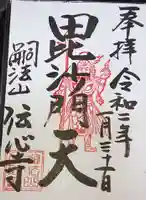 奉拝 令和二年
月三十一日
毘沙門天
嗣法山
伝心寺